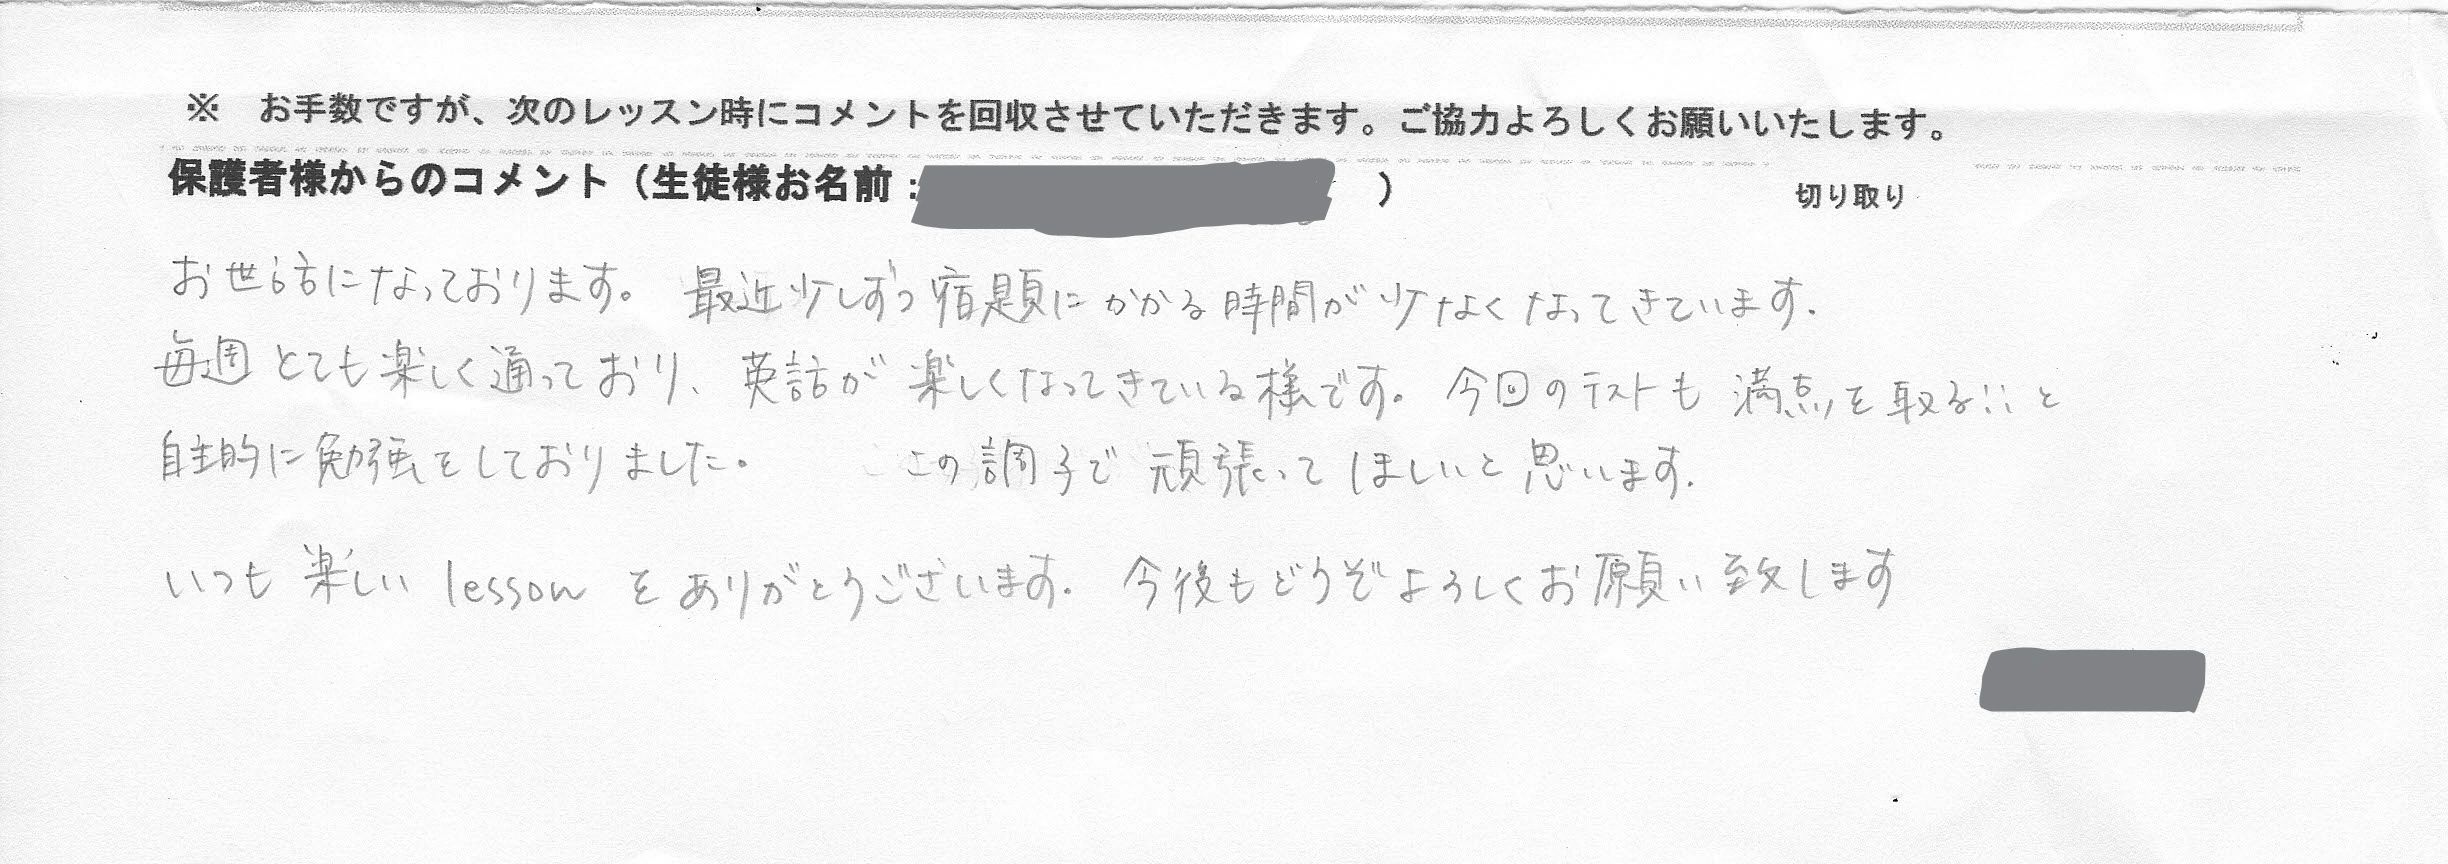 ※　お手数ですが、次のレッスン時にコメントを回収させていただきます。ご協力よろしくお願いいたします。
保護者様からのコメント（生徒様お名前：　　　）
切り取り
お世話になっております。最近少しずつ宿題にかかる時間が少なくなってきています.
毎週とても楽しく通っており、英語が楽しくなってきている様です。今回のテストも満点を取る!!と
自主的に勉強をしておりました。この調子で頑張ってほしいと思います.
いつも楽しいlessonをありがとうございます.今後もどうぞよろしくお願い致します